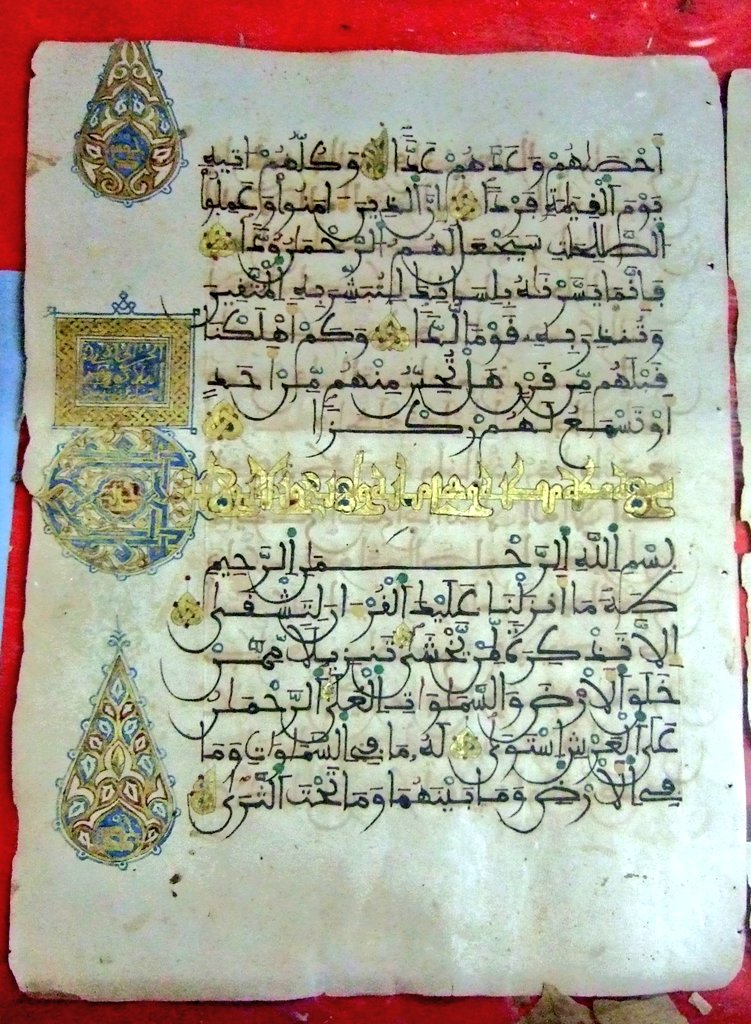 أَحْصَىٰهُمْ وَعَدَّهُمْ عَدًّا وَكُلُّهُمْ ءَاتِيهِ
يَوْمَ ٱلْقِيَٰمَةِ فَرْدًا إِنَّ ٱلَّذِينَ ءَامَنُوا۟ وَعَمِلُوا۟
ٱلصَّٰلِحَٰتِ سَيَجْعَلُ لَهُمُ ٱلرَّحْمَٰنُ وُدًّا
فَإِنَّمَا يَسَّرْنَٰهُ بِلِسَانِكَ لِتُبَشِّرَ بِهِ ٱلْمُتَّقِينَ
وَتُنذِرَ بِهِ قَوْمًا لُّدًّا وَكَمْ أَهْلَكْنَا
قَبْلَهُم مِّن قَرْنٍ هَلْ تُحِسُّ مِنْهُم مِّنْ أَحَدٍ
أَوْ تَسْمَعُ لَهُمْ رِكْزًا
بِسْمِ ٱللَّهِ ٱلرَّحْمَٰنِ ٱلرَّحِيمِ
طَهَ مَا أَنزَلْنَا عَلَيْكَ ٱلْقُرْءَانَ لِتَشْقَىٰ
إِلَّا تَذْكِرَةً لِّمَن يَخْشَىٰ تَنزِيلًا مِّمَّنْ
خَلَقَ ٱلْأَرْضَ وَٱلسَّمَٰوَٰتِ ٱلْعُلَى ٱلرَّحْمَٰنُ
عَلَى ٱلْعَرْشِ ٱسْتَوَىٰ لَهُ مَا فِي ٱلسَّمَٰوَٰتِ وَمَا
فِي ٱلْأَرْضِ وَمَا بَيْنَهُمَا وَمَا تَحْتَ ٱلثَّرَىٰ